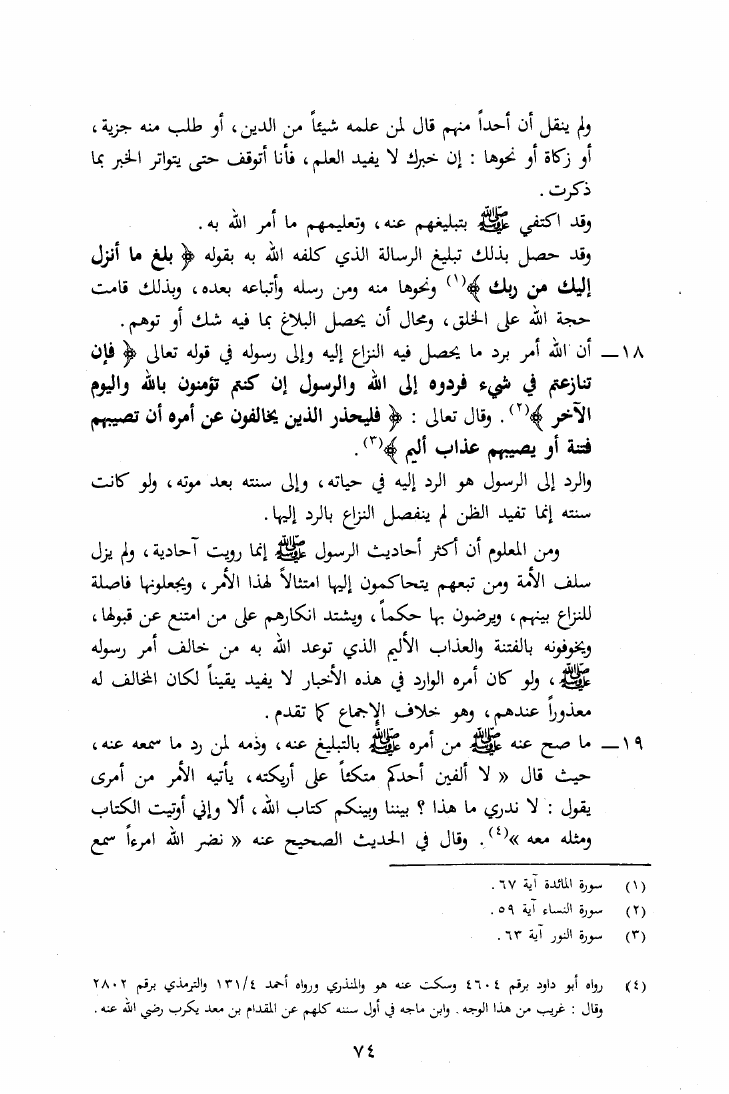 ولم ينقل أن أحداً منهم قال لمن علمه شيئاً من الدين، أو طلب منه جزية،
أو زكاة أو نحوها : إن خبرك لا يفيد العلم، فأنا أتوقف حتى يتواتر الخبر بما
ذكرت.
وقد اكتفي ﷺ بتبليغهم عنه، وتعليمهم ما أمر الله به.
وقد حصل بذلك تبليغ الرسالة الذي كلفه الله به بقوله ﴿ بلغ ما أنزل
إليك من ربك ﴾(١) ونحوها منه ومن رسله وأتباعه بعده، وبذلك قامت
حجة الله على الخلق، ومحال أن يحصل البلاغ بما فيه شك أو توهم.
١٨ــ أن الله أمر برد ما يحصل فيه النزاع إليه وإلى رسوله في قوله تعالى ﴿ فإن
تنازعتم في شيء فردوه إلى الله والرسول إن كنتم تؤمنون بالله واليوم
الآخر ﴾(٢). وقال تعالى : ﴿ فليحذر الذين يخالفون عن أمره أن تصيبهم
فتنة أو يصيبهم عذاب أليم ﴾(٣).
والرد إلى الرسول هو الرد إليه في حياته، وإلى سنته بعد موته، ولو كانت
سنته إنما تفيد الظن لم ينفصل النزاع بالرد إليها.
ومن المعلوم أن أكثر أحاديث الرسول ﷺ إنما رويت آحادية، ولم يزل
سلف الأمة ومن تبعهم يتحاكمون إليها امتثالاً لهذا الأمر، ويجعلونها فاصلة
للنزاع بينهم، ويرضون بها حكماً، ويشتد انكارهم على من امتنع عن قبولها،
ويخوفونه بالفتنة والعذاب الأليم الذي توعد الله به من خالف أمر رسوله
ﷺ، ولو كان أمره الوارد في هذه الأخبار لا يفيد يقيناً لكان المخالف له
معذوراً عندهم، وهو خلاف الإجماع كما تقدم.
١٩ــ ما صح عنه ﷺ من أمره ﷺ بالتبليغ عنه، وذمه لمن رد ما سمعه عنه،
حيث قال « لا ألفين أحدكم متكئاً على أريكته، يأتيه الأمر من أمرى
يقول : لا ندري ما هذا ؟ بيننا وبينكم كتاب الله، ألا وإني أوتيت الكتاب
ومثله معه »(٤). وقال في الحديث الصحيح عنه « نضر الله امرءاً سمع
(١) سورة المائدة آية ٦٧.
(٢) سورة النساء آية ٥٩.
(٣) سورة النور آية ٦٣.
(٤) رواه أبو داود برقم ٤٦٠٤ وسكت عنه هو والمنذري ورواه أحمد ١٣١/٤ والترمذي برقم ٢٨٠٢
وقال : غريب من هذا الوجه. وابن ماجه في أول سننه كلهم عن المقدام بن معد يكرب رضي الله عنه.
٧٤